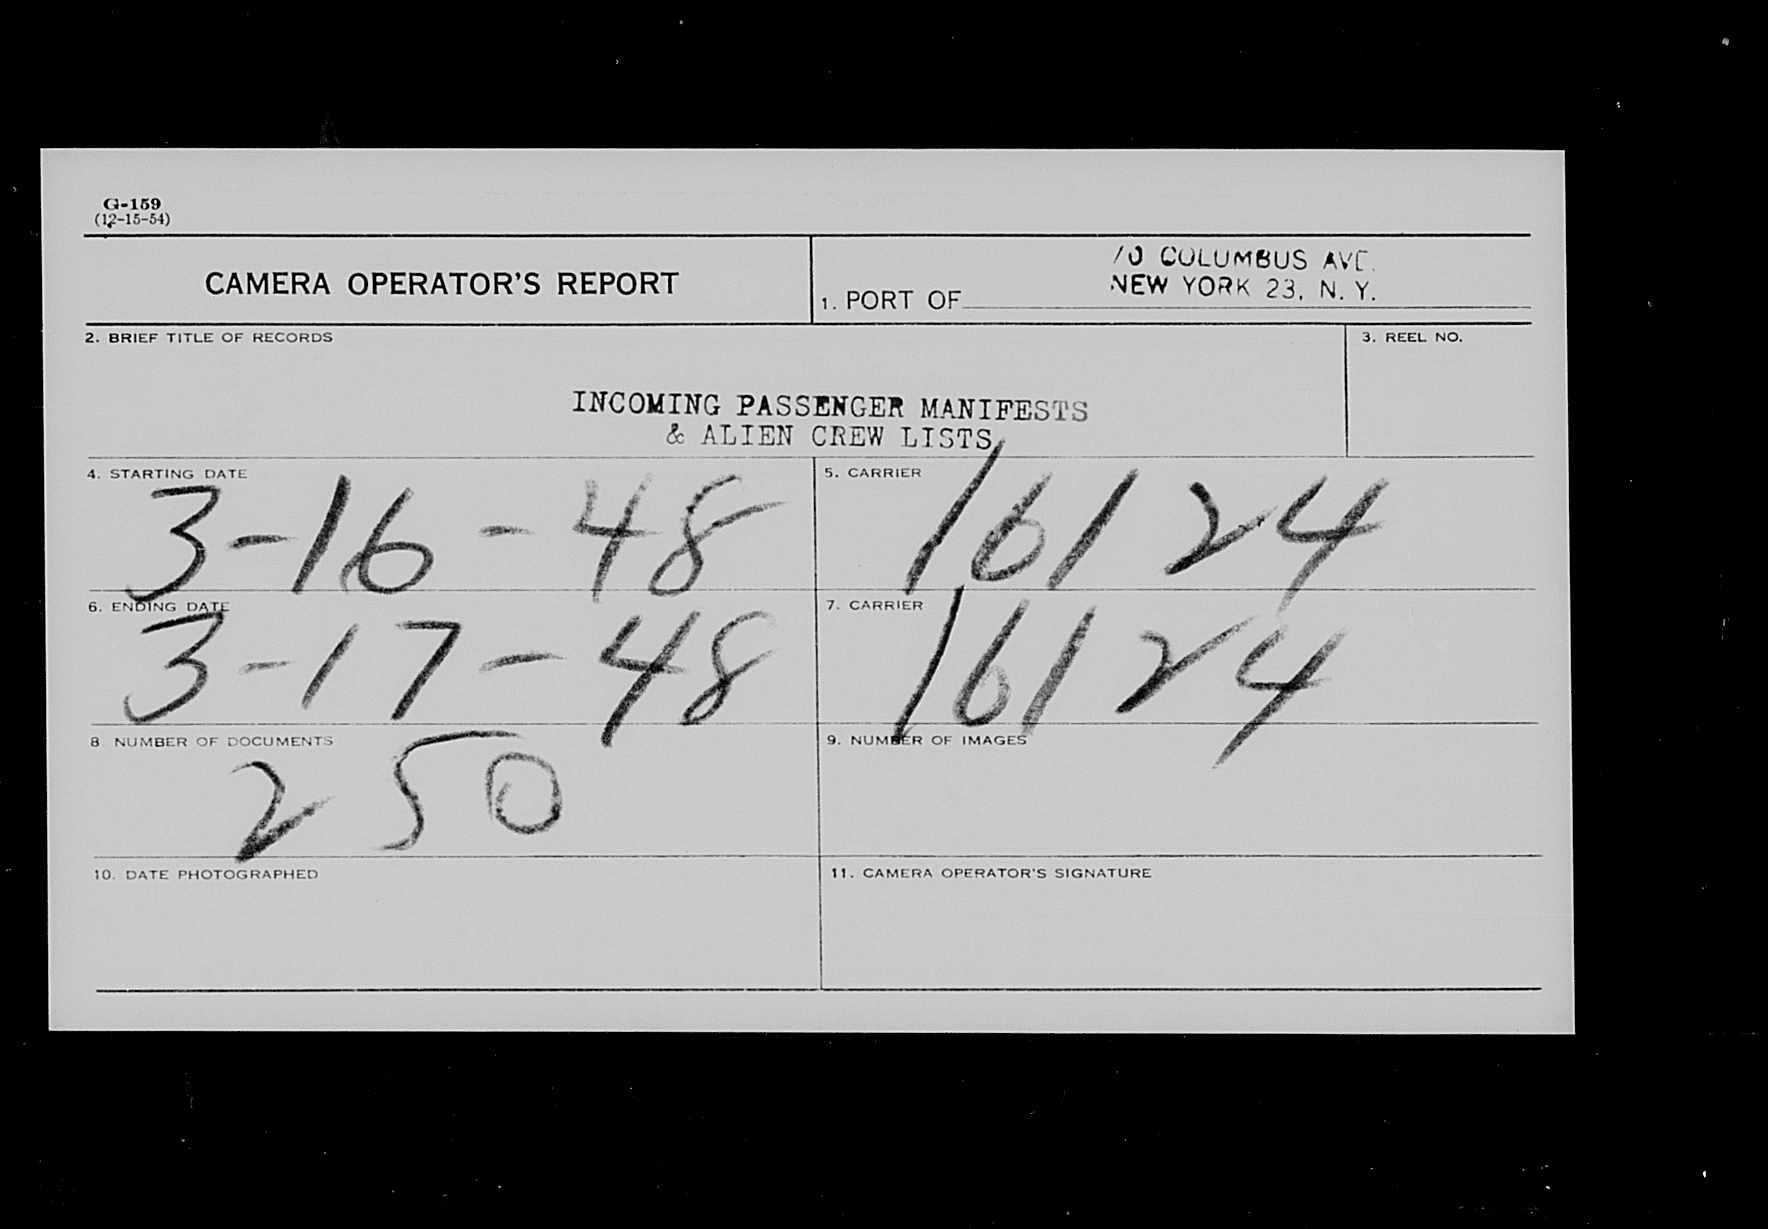 G-159
(12-15-54)
CAMERA OPERATOR'S REPORT
1. PORT OF
70 COLUMBUS AVE.
NEW YORK 23, N. Y.
2. BRIEF TITLE OF RECORDS
3. REEL NO.
INCOMING PASSENGER MANIFESTS
& ALIEN CREW LISTS
4. STARTING DATE
3-16-48
5. CARRIER
16124
6. ENDING DATE
3-17-48
7. CARRIER
16124
8 NUMBER OF DOCUMENTS
250
9. NUMBER OF IMAGES
10. DATE PHOTOGRAPHED
11. CAMERA OPERATOR'S SIGNATURE